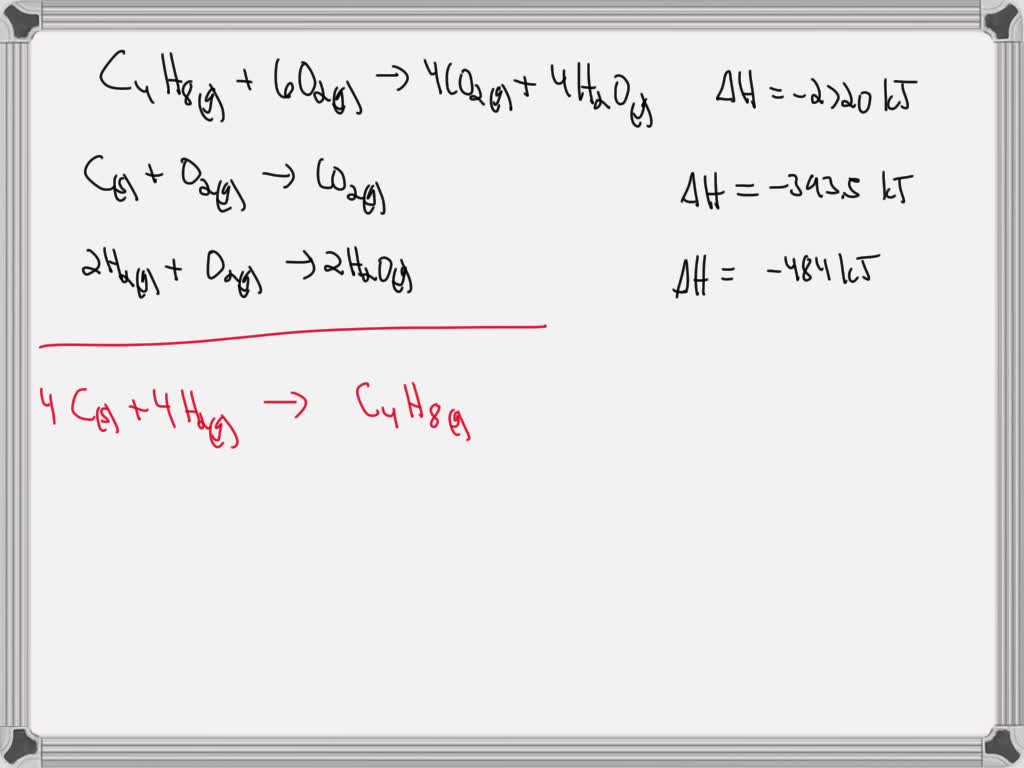 C₄H₈(g) + 6O₂(g) → 4CO₂(g) + 4H₂O(g) ΔH = -2720 kJ
C(s) + O₂(g) → CO₂(g) ΔH = -393.5 kJ
2H₂(g) + O₂(g) → 2H₂O(g) ΔH = -484 kJ
4 C(s) + 4 H₂(g) → C₄H₈(g)